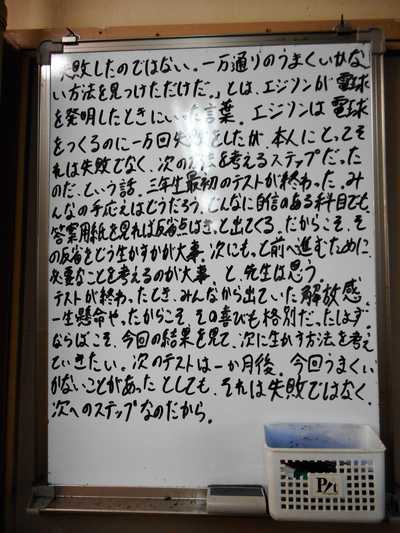 失敗したのではない。一万通りのうまくいかな
い方法を見つけただけだ。」とは、エジソンが電球
を発明したときにいった言葉。エジソンは電球
をつくるのに一万回失敗をしたが、本人にとってそ
れは失敗でなく、次の方法を考えるステップだった
のだ、という話。三年生最初のテストが終わった。み
んなの手応えはどうだろう。どんなに自信のある科目でも、
答案用紙を見れば反省点はきっと出てくる。だからこそ、そ
の反省をどう生かすかが大事。次にもっと前へ進むために、
必要なことを考えるのが大事 と、先生は思う。
テストが終わったとき、みんなから出ていた解放感。
一生懸命やったからこそ、その喜びも格別だったはず。
ならばこそ、今回の結果を見て、次に生かす方法を考え
ていきたい。次のテストは一か月後。今回うまくい
かないことがあったとしても、それは失敗ではなく、
次へのステップなのだから。